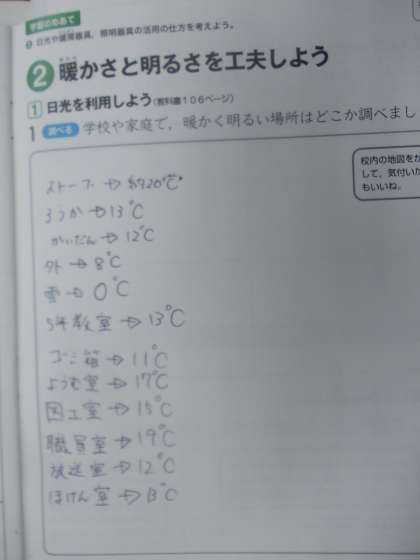 学習のめあて
日光や暖房器具，照明器具の活用の仕方を考えよう。
2 暖かさと明るさを工夫しよう
1 日光を利用しよう（教科書106ページ）
1 調べる 学校や家庭で，暖かく明るい場所はどこか調べまし
校内の地図をか
して，気付いた
もいいね。
ストーブ→約20℃
ろうか→13℃
かいだん→12℃
外→8℃
雪→0℃
5年教室→13℃
ゴミ箱→11℃
ようむ室→17℃
図工室→15℃
職員室→19℃
放送室→12℃
ほけん室→13℃